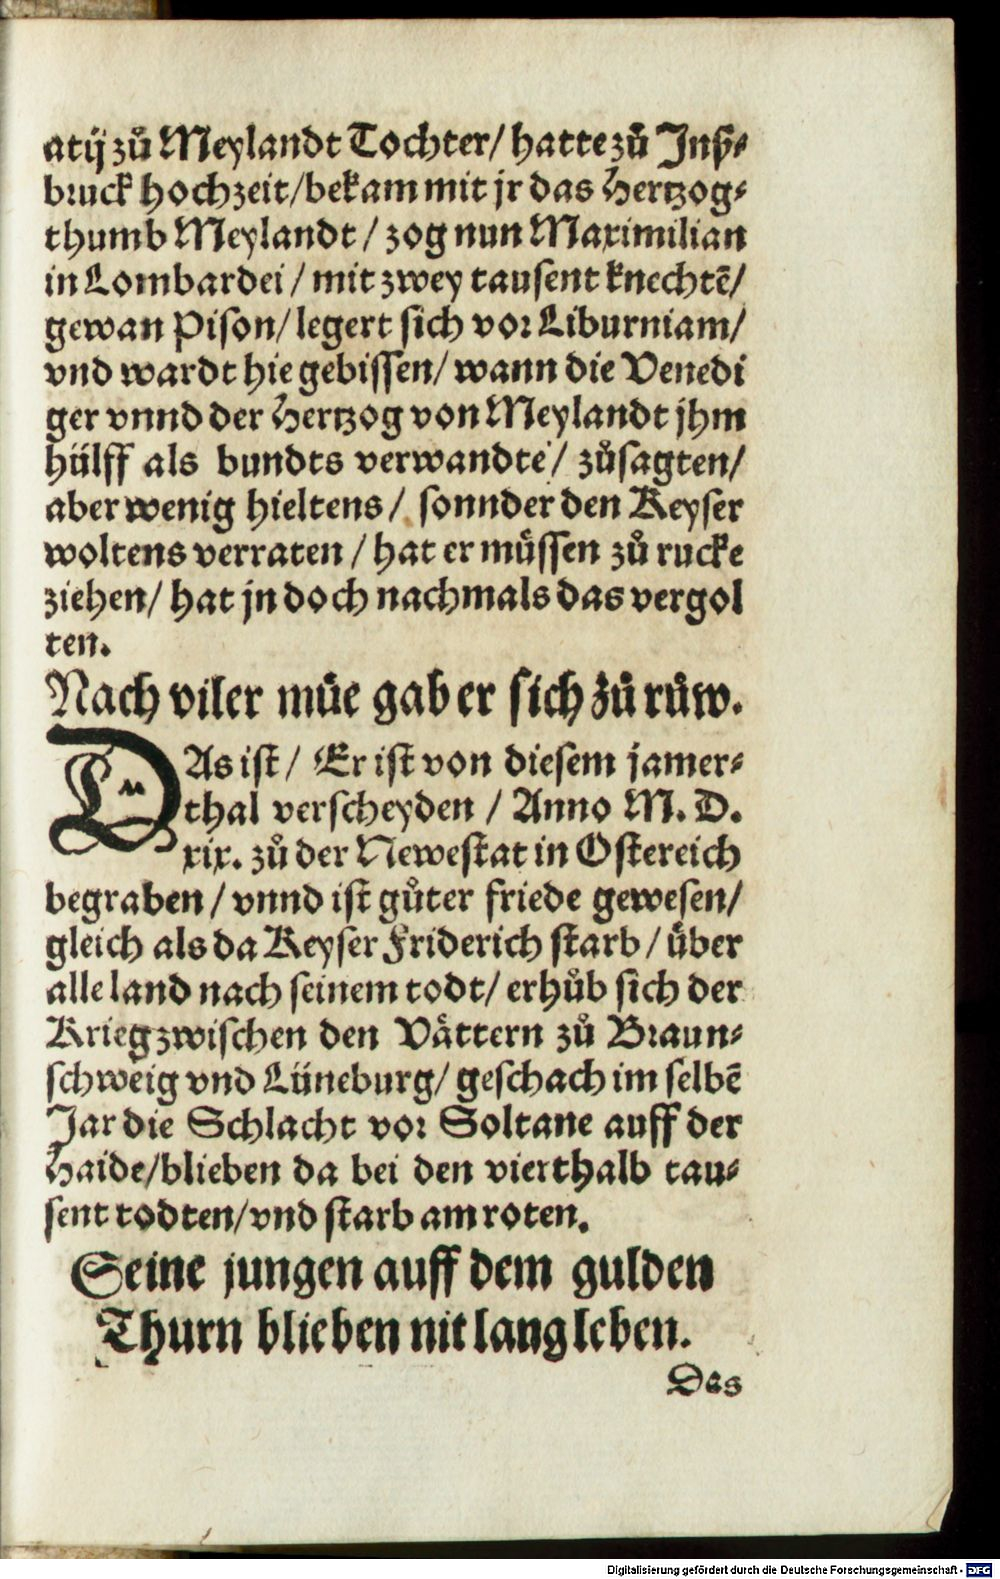 atij zů Meylandt Tochter/ hatte zů Jnsp⸗
bruck hochzeit/bekam mit jr das Hertzog⸗
thumb Meylandt / zog nun Maximilian
in Lombardei / mit zwey tausent knechtẽ/
gewan Pison/ legert sich vor Liburniam/
vnd wardt hie gebissen/ wann die Venedi
ger vnnd der Hertzog von Meylandt jhm
hülff als bundts verwandte/ zůsagten/
aber wenig hieltens / sonnder den Keyser
woltens verraten / hat er müssen zů rucke
ziehen/ hat jn doch nachmals das vergol
ten.
Nach viler müe gab er sich zů růw.
DAs ist / Er ist von diesem jamer⸗
thal verscheyden / Anno M. D.
xix. zů der Newestat in Ostereich
begraben / vnnd ist gůter friede gewesen/
gleich als da Keyser Friderich starb / über
alle land nach seinem todt/ erhůb sich der
Krieg zwischen den Vättern zů Braun⸗
schweig vnd Lüneburg/ geschach im selbẽ
Jar die Schlacht vor Soltane auff der
Haide/blieben da bei den vierthalb tau⸗
sent todten/vnd starb am roten.
Seine jungen auff dem gulden
Thurn blieben nit lang leben.
Das
Digitalisierung gefördert durch die Deutsche Forschungsgemeinschaft - DFG